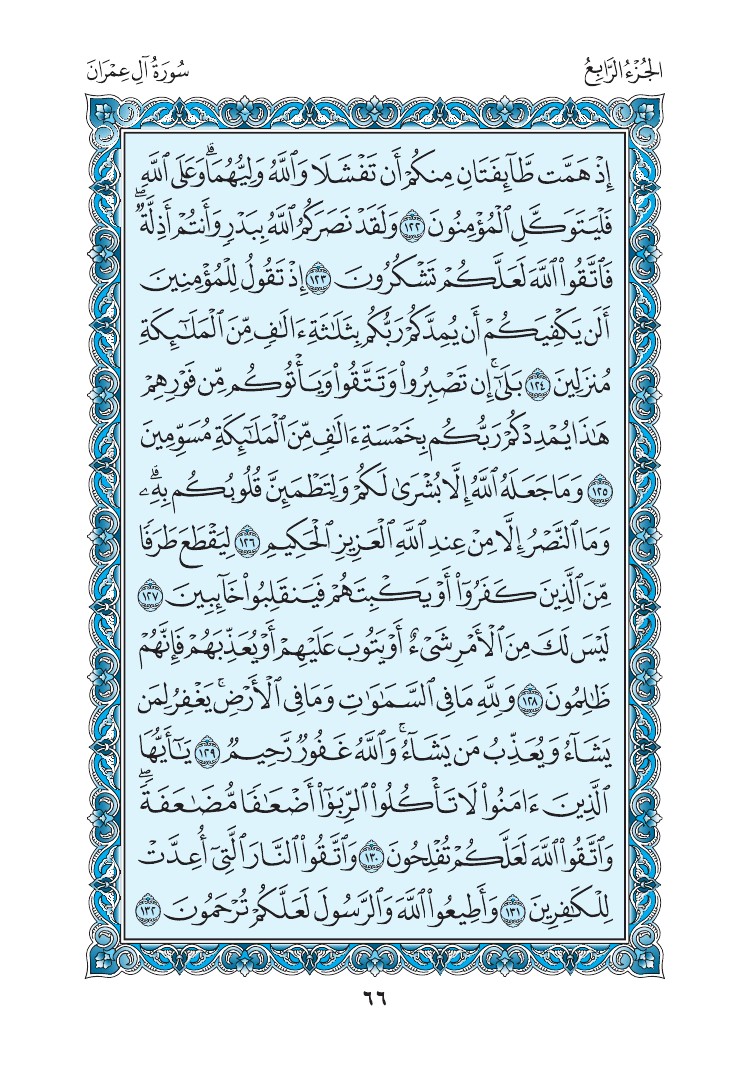 الجُزْءُ الرَّابِعُ
سُورَةُ آلِ عِمْرَانَ
إِذْ هَمَّت طَّآئِفَتَانِ مِنكُمْ أَن تَفْشَلَا وَٱللَّهُ وَلِيُّهُمَاۗ وَعَلَى ٱللَّهِ
فَلْيَتَوَكَّلِ ٱلْمُؤْمِنُونَ ١٢٢ وَلَقَدْ نَصَرَكُمُ ٱللَّهُ بِبَدْرٍ وَأَنتُمْ أَذِلَّةٌۖ
فَٱتَّقُوا۟ ٱللَّهَ لَعَلَّكُمْ تَشْكُرُونَ ١٢٣ إِذْ تَقُولُ لِلْمُؤْمِنِينَ
أَلَن يَكْفِيَكُمْ أَن يُمِدَّكُمْ رَبُّكُم بِثَلَٰثَةِ ءَالَٰفٍ مِّنَ ٱلْمَلَٰٓئِكَةِ
مُنزَلِينَ ١٢٤ بَلَىٰٓۚ إِن تَصْبِرُوا۟ وَتَتَّقُوا۟ وَيَأْتُوكُم مِّن فَوْرِهِمْ
هَٰذَا يُمْدِدْكُمْ رَبُّكُم بِخَمْسَةِ ءَالَٰفٍ مِّنَ ٱلْمَلَٰٓئِكَةِ مُسَوِّمِينَ
١٢٥ وَمَا جَعَلَهُ ٱللَّهُ إِلَّا بُشْرَىٰ لَكُمْ وَلِتَطْمَئِنَّ قُلُوبُكُم بِهِۦۗ
وَمَا ٱلنَّصْرُ إِلَّا مِنْ عِندِ ٱللَّهِ ٱلْعَزِيزِ ٱلْحَكِيمِ ١٢٦ لِيَقْطَعَ طَرَفًا
مِّنَ ٱلَّذِينَ كَفَرُوٓا۟ أَوْ يَكْبِتَهُمْ فَيَنقَلِبُوا۟ خَآئِبِينَ ١٢٧
لَيْسَ لَكَ مِنَ ٱلْأَمْرِ شَىْءٌ أَوْ يَتُوبَ عَلَيْهِمْ أَوْ يُعَذِّبَهُمْ فَإِنَّهُمْ
ظَٰلِمُونَ ١٢٨ وَلِلَّهِ مَا فِى ٱلسَّمَٰوَٰتِ وَمَا فِى ٱلْأَرْضِۚ يَغْفِرُ لِمَن
يَشَآءُ وَيُعَذِّبُ مَن يَشَآءُۚ وَٱللَّهُ غَفُورٌ رَّحِيمٌ ١٢٩ يَٰٓأَيُّهَا
ٱلَّذِينَ ءَامَنُوا۟ لَا تَأْكُلُوا۟ ٱلرِّبَوٰٓا۟ أَضْعَٰفًا مُّضَٰعَفَةًۖ
وَٱتَّقُوا۟ ٱللَّهَ لَعَلَّكُمْ تُفْلِحُونَ ١٣٠ وَٱتَّقُوا۟ ٱلنَّارَ ٱلَّتِىٓ أُعِدَّتْ
لِلْكَٰفِرِينَ ١٣١ وَأَطِيعُوا۟ ٱللَّهَ وَٱلرَّسُولَ لَعَلَّكُمْ تُرْحَمُونَ ١٣٢
٦٦